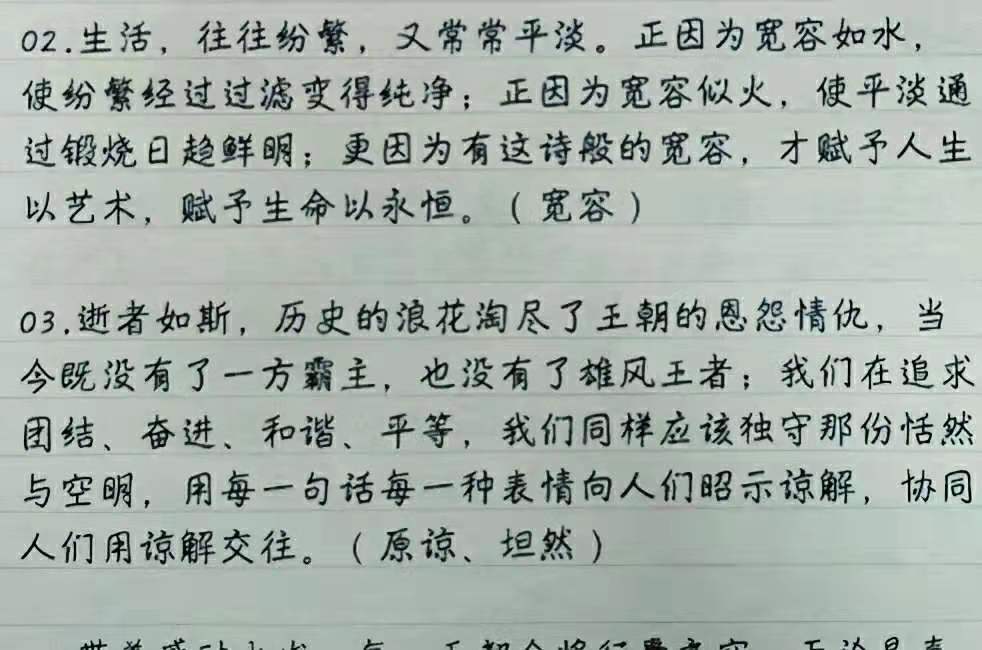 02.生活，往往纷繁，又常常平淡。正因为宽容如水，
使纷繁经过过滤变得纯净；正因为宽容似火，使平淡通
过锻烧日趋鲜明；更因为有这诗般的宽容，才赋予人生
以艺术，赋予生命以永恒。（宽容）
03.逝者如斯，历史的浪花淘尽了王朝的恩怨情仇，当
今既没有了一方霸主，也没有了雄风王者；我们在追求
团结、奋进、和谐、平等，我们同样应该独守那份恬然
与空明，用每一句话每一种表情向人们昭示谅解，协同
人们用谅解交往。（原谅、坦然）